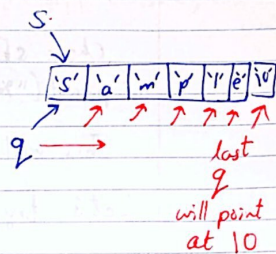 S.
'S' 'a' 'm' 'p' 'l' 'e' '\0'
q
last
q
will point
at \0